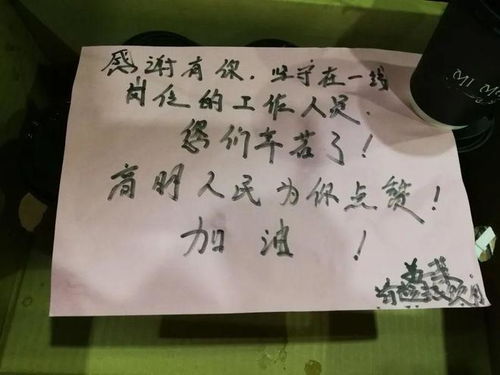 感谢有你，坚守在一线
岗位的工作人员.
您们辛苦了！
高明人民为你点赞！
加油！
MI M